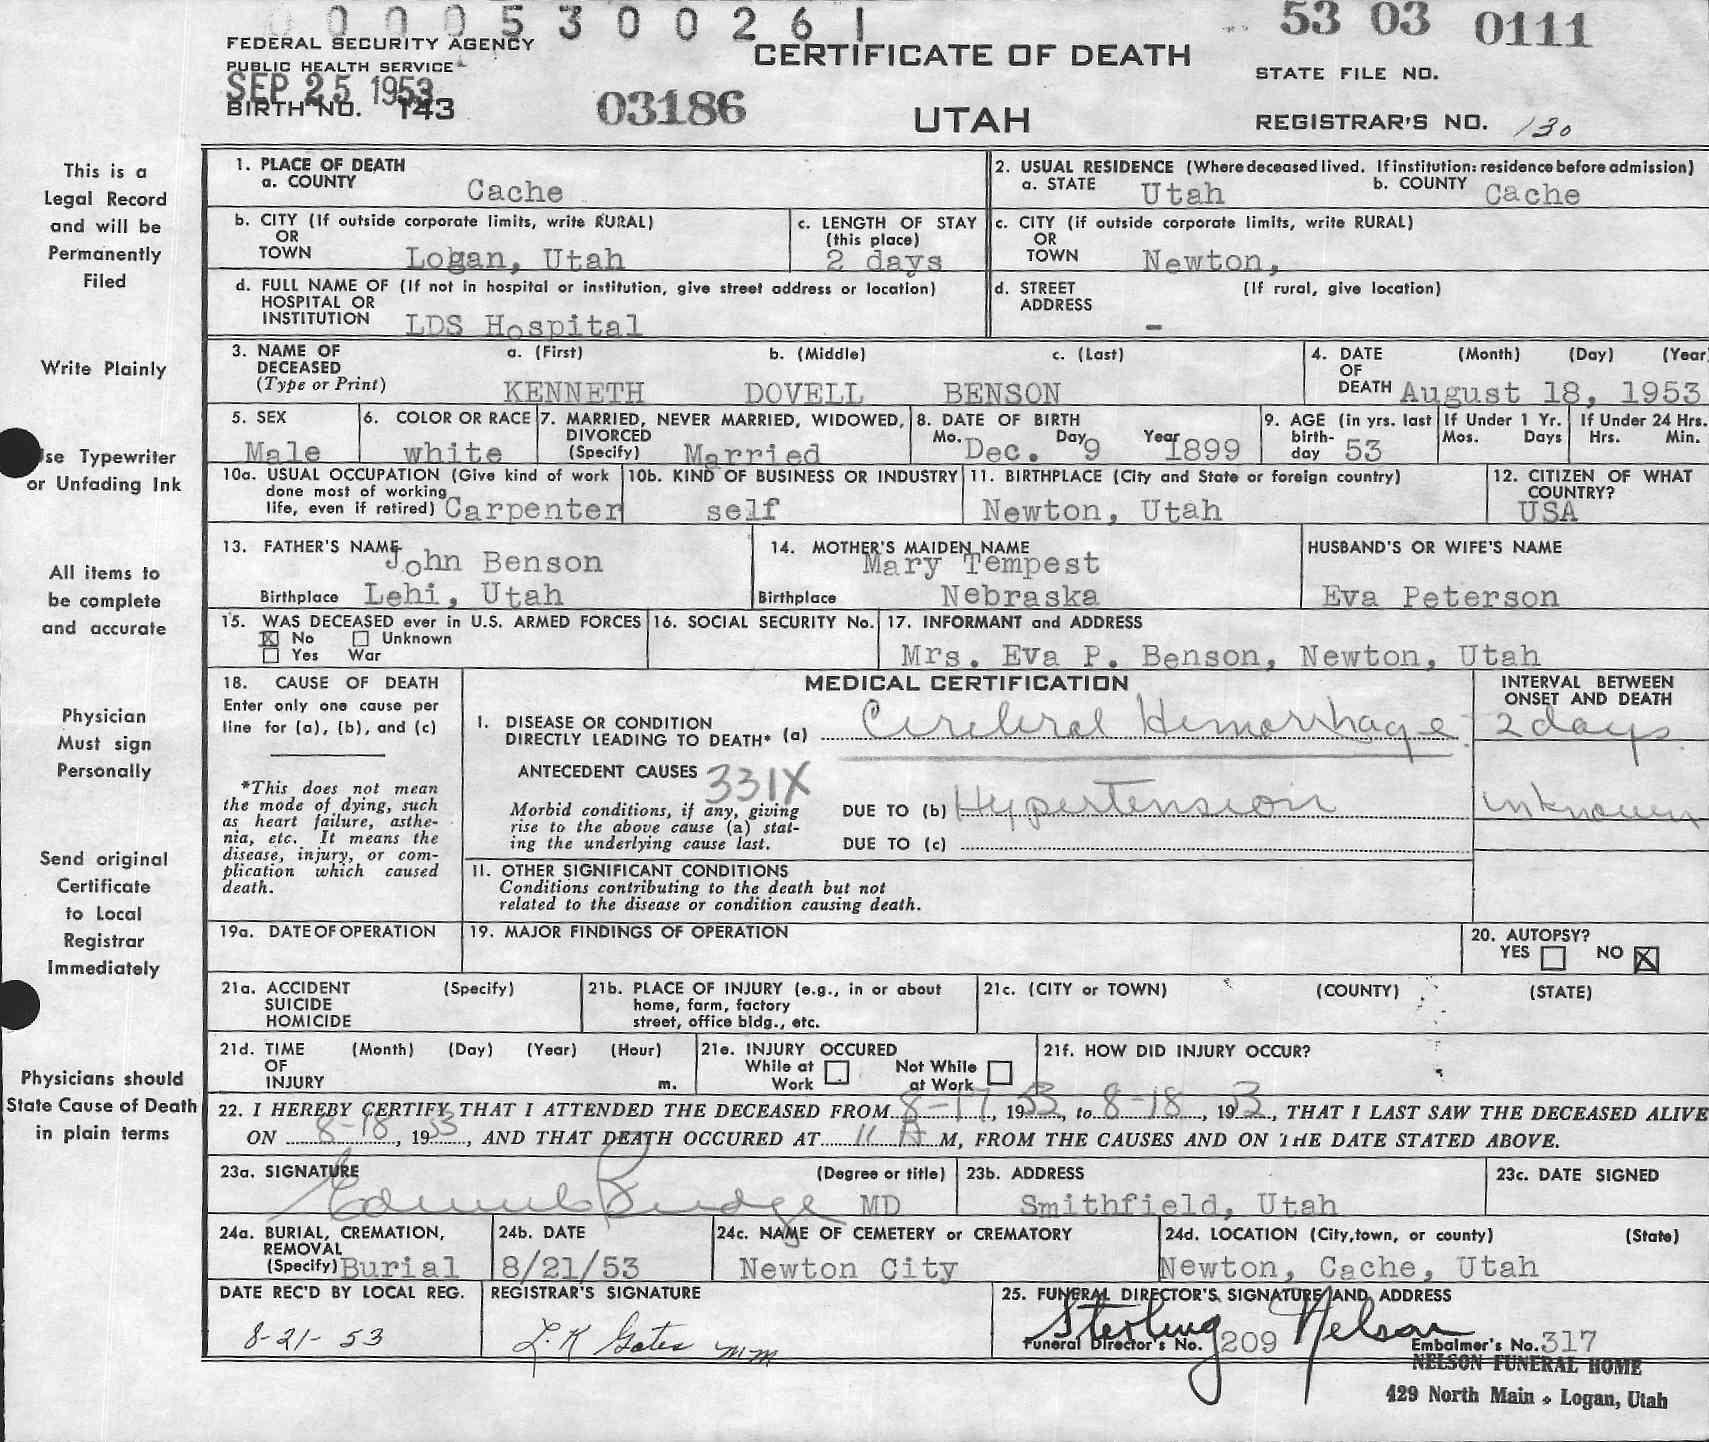 0 0 0 0 5 3 0 0 2 6 1
53 03 0111
FEDERAL SECURITY AGENCY
PUBLIC HEALTH SERVICE
CERTIFICATE OF DEATH
STATE FILE NO.
SEP 25 1953
BIRTH NO. 143
03186
UTAH
REGISTRAR'S NO. 130
This is a
Legal Record
and will be
Permanently
Filed
Write Plainly
Use Typewriter
or Unfading Ink
All items to
be complete
and accurate
Physician
Must sign
Personally
Send original
Certificate
to Local
Registrar
Immediately
Physicians should
State Cause of Death
in plain terms
1. PLACE OF DEATH
a. COUNTY Cache
2. USUAL RESIDENCE (Where deceased lived. If institution: residence before admission)
a. STATE Utah b. COUNTY Cache
b. CITY (If outside corporate limits, write RURAL)
OR
TOWN Logan, Utah
c. LENGTH OF STAY
(this place)
2 days
c. CITY (if outside corporate limits, write RURAL)
OR
TOWN Newton,
d. FULL NAME OF (If not in hospital or institution, give street address or location)
HOSPITAL OR
INSTITUTION LDS Hospital
d. STREET (If rural, give location)
ADDRESS -
3. NAME OF a. (First) b. (Middle) c. (Last)
DECEASED
(Type or Print) KENNETH DOVELL BENSON
4. DATE (Month) (Day) (Year
OF
DEATH August 18, 1953
5. SEX
Male
6. COLOR OR RACE
white
7. MARRIED, NEVER MARRIED, WIDOWED,
DIVORCED
(Specify) Married
8. DATE OF BIRTH
Mo. Dec. Day 9 Year 1899
9. AGE (in yrs. last
birth-
day 53
If Under 1 Yr.
Mos. Days
If Under 24 Hrs.
Hrs. Min.
10a. USUAL OCCUPATION (Give kind of work
done most of working
life, even if retired) Carpenter
10b. KIND OF BUSINESS OR INDUSTRY
self
11. BIRTHPLACE (City and State or foreign country)
Newton, Utah
12. CITIZEN OF WHAT
COUNTRY?
USA
13. FATHER'S NAME
John Benson
Birthplace Lehi, Utah
14. MOTHER'S MAIDEN NAME
Mary Tempest
Birthplace Nebraska
HUSBAND'S OR WIFE'S NAME
Eva Peterson
15. WAS DECEASED ever in U.S. ARMED FORCES
X No Unknown
Yes War
16. SOCIAL SECURITY No.
17. INFORMANT and ADDRESS
Mrs. Eva P. Benson, Newton, Utah
18. CAUSE OF DEATH
Enter only one cause per
line for (a), (b), and (c)
*This does not mean
the mode of dying, such
as heart failure, asthe-
nia, etc. It means the
disease, injury, or com-
plication which caused
death.
MEDICAL CERTIFICATION
INTERVAL BETWEEN
ONSET AND DEATH
I. DISEASE OR CONDITION
DIRECTLY LEADING TO DEATH* (a) Cerebral Hemorrhage 2 days
ANTECEDENT CAUSES 331X
Morbid conditions, if any, giving
rise to the above cause (a) stat-
ing the underlying cause last.
DUE TO (b) Hypertension unknown
DUE TO (c)
II. OTHER SIGNIFICANT CONDITIONS
Conditions contributing to the death but not
related to the disease or condition causing death.
19a. DATE OF OPERATION
19. MAJOR FINDINGS OF OPERATION
20. AUTOPSY?
YES NO X
21a. ACCIDENT (Specify)
SUICIDE
HOMICIDE
21b. PLACE OF INJURY (e.g., in or about
home, farm, factory
street, office bldg., etc.
21c. (CITY or TOWN) (COUNTY) (STATE)
21d. TIME (Month) (Day) (Year) (Hour)
OF
INJURY m.
21e. INJURY OCCURED
While at Not While
Work at Work
21f. HOW DID INJURY OCCUR?
22. I HEREBY CERTIFY THAT I ATTENDED THE DECEASED FROM 8-17, 1953, to 8-18, 1953, THAT I LAST SAW THE DECEASED ALIVE
ON 8-18, 1953, AND THAT DEATH OCCURED AT 11 A M, FROM THE CAUSES AND ON THE DATE STATED ABOVE.
23a. SIGNATURE (Degree or title)
Budge MD
23b. ADDRESS
Smithfield, Utah
23c. DATE SIGNED
24a. BURIAL, CREMATION,
REMOVAL
(Specify) Burial
24b. DATE
8/21/53
24c. NAME OF CEMETERY or CREMATORY
Newton City
24d. LOCATION (City, town, or county) (State)
Newton, Cache, Utah
DATE REC'D BY LOCAL REG.
8-21-53
REGISTRAR'S SIGNATURE
L. K Gates mm
25. FUNERAL DIRECTOR'S SIGNATURE AND ADDRESS
Sterling Nelson
Funeral Director's No. 209 Embalmer's No. 317
NELSON FUNERAL HOME
429 North Main • Logan, Utah